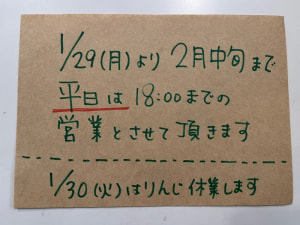 1/29(月)より 2月中旬まで
平日は 18:00までの
営業とさせて頂きます
1/30(火)はりんじ休業します